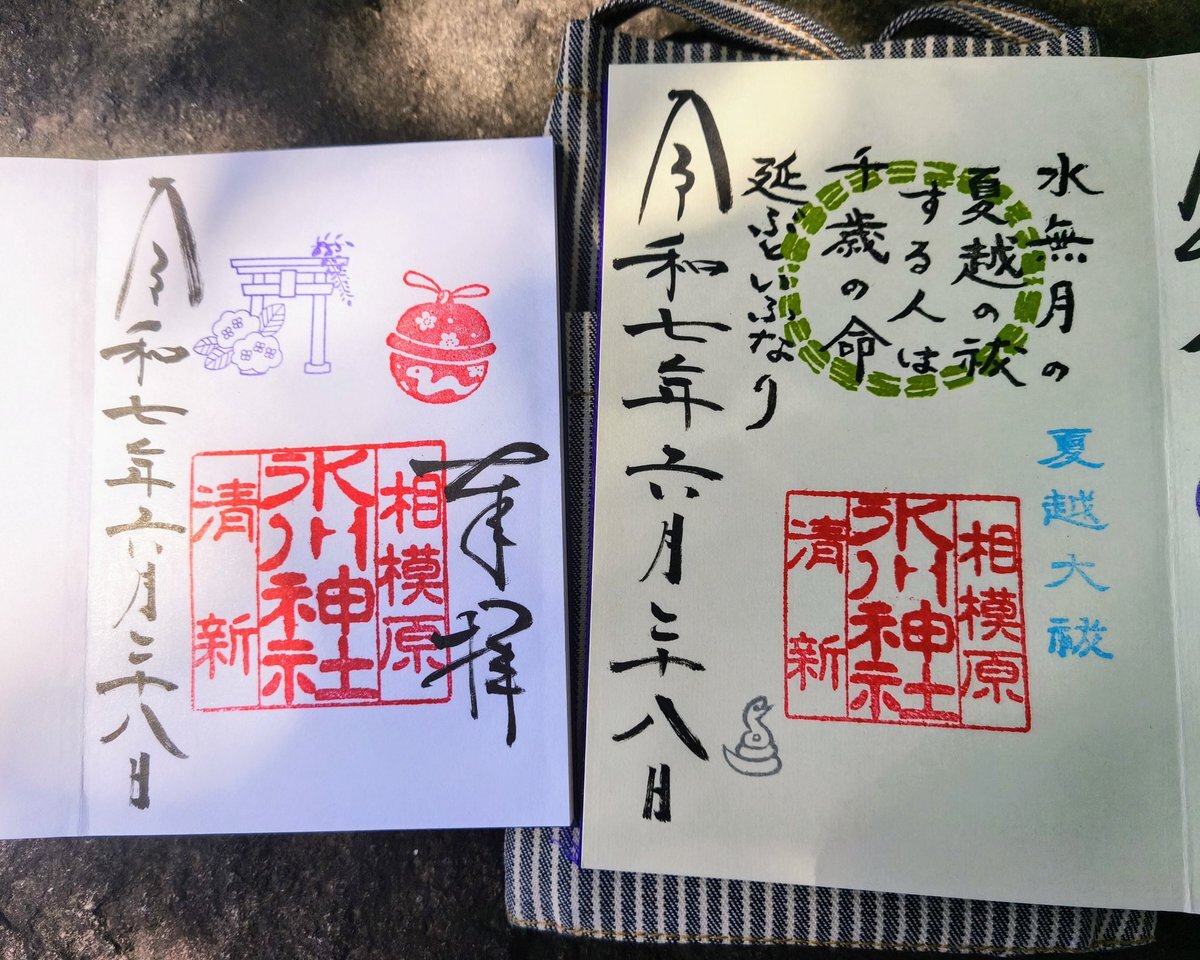 水無月の
夏越の祓
する人は
千歳の命
延ふといふなり
夏越大祓
相模原
氷川神社
清新
令和七年六月二十八日
奉拝
相模原
氷川神社
清新
令和七年六月二十八日